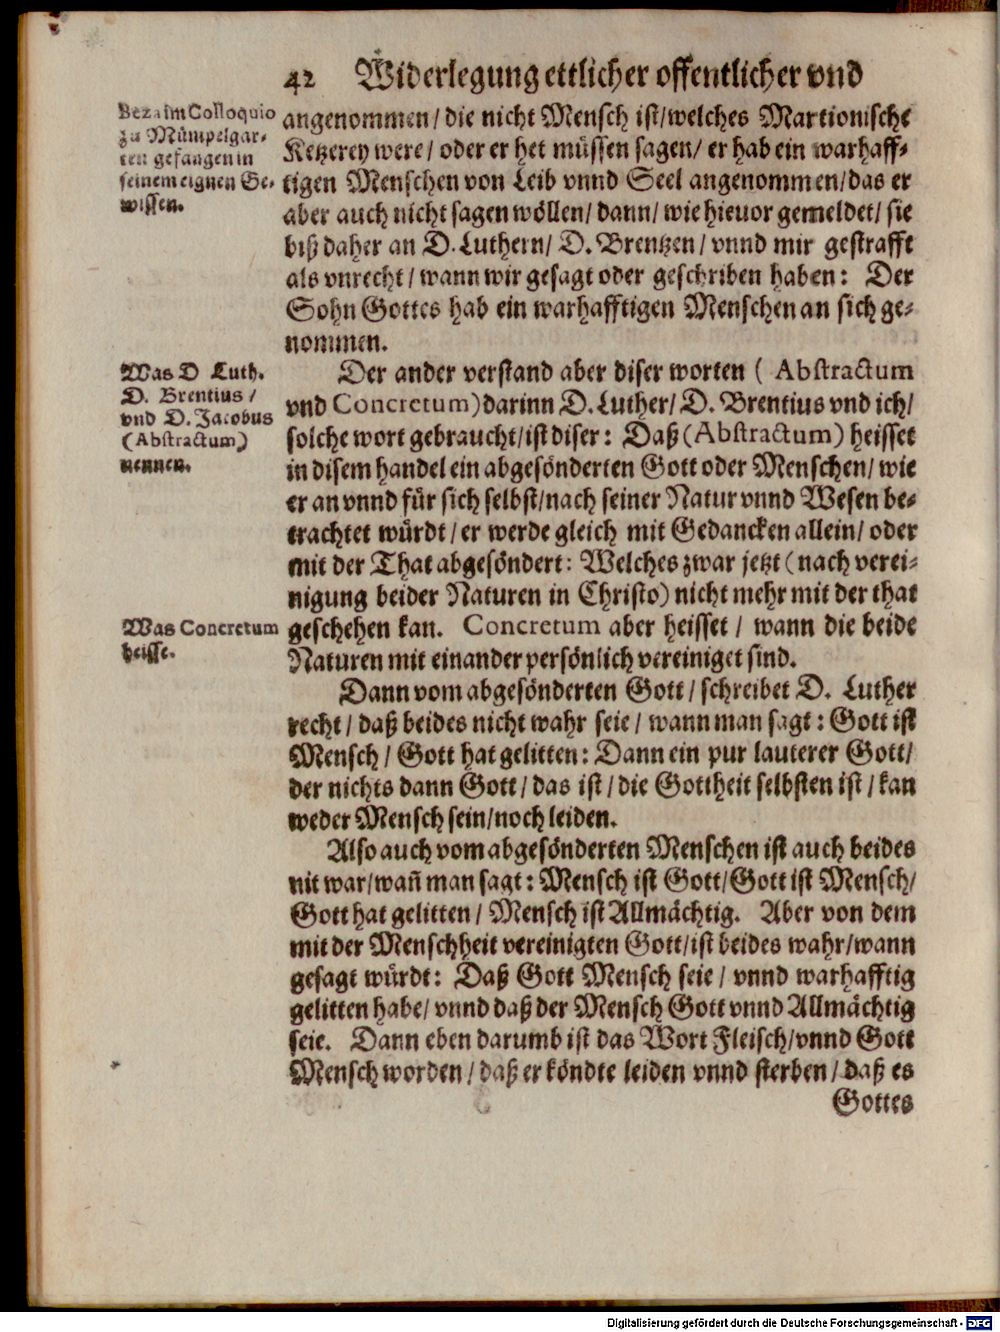 42 Widerlegung ettlicher offentlicher vnd
Beza im Colloquio
zu Mümpelgar-
ten gefangen in
seinem eignen Ge-
wissen.
angenommen / die nicht Mensch ist / welches Martionische
Ketzerey were / oder er het müssen sagen / er hab ein warhaff-
tigen Menschen von Leib vnnd Seel angenommen / das er
aber auch nicht sagen wöllen / dann / wie hieuor gemeldet / sie
biß daher an D. Luthern / D. Brentzen / vnnd mir gestrafft
als vnrecht / wann wir gesagt oder geschriben haben: Der
Sohn Gottes hab ein warhafftigen Menschen an sich ge-
nommen.
Was D Luth.
D. Brentius /
vnd D. Jacobus
(Abstractum)
nennen.
Der ander verstand aber diser worten ( Abstractum
vnd Concretum) darinn D. Luther / D. Brentius vnd ich /
solche wort gebraucht / ist diser: Daß (Abstractum) heisset
in disem handel ein abgesönderten Gott oder Menschen / wie
er an vnnd für sich selbst / nach seiner Natur vnnd Wesen be-
trachtet würdt / er werde gleich mit Gedancken allein / oder
mit der That abgesöndert: Welches zwar jetzt (nach verei-
nigung beider Naturen in Christo) nicht mehr mit der that
Was Concretum
heisse.
geschehen kan. Concretum aber heisset / wann die beide
Naturen mit einander persönlich vereiniget sind.
Dann vom abgesönderten Gott / schreibet D. Luther
recht / daß beides nicht wahr seie / wann man sagt: Gott ist
Mensch / Gott hat gelitten: Dann ein pur lauterer Gott /
der nichts dann Gott / das ist / die Gottheit selbsten ist / kan
weder Mensch sein / noch leiden.
Also auch vom abgesönderten Menschen ist auch beides
nit war / wañ man sagt: Mensch ist Gott / Gott ist Mensch /
Gott hat gelitten / Mensch ist Allmächtig. Aber von dem
mit der Menschheit vereinigten Gott / ist beides wahr / wann
gesagt würdt: Daß Gott Mensch seie / vnnd warhafftig
gelitten habe / vnnd daß der Mensch Gott vnnd Allmächtig
seie. Dann eben darumb ist das Wort Fleisch / vnnd Gott
Mensch worden / daß er köndte leiden vnnd sterben / daß es
Gottes
Digitalisierung gefördert durch die Deutsche Forschungsgemeinschaft - DFG